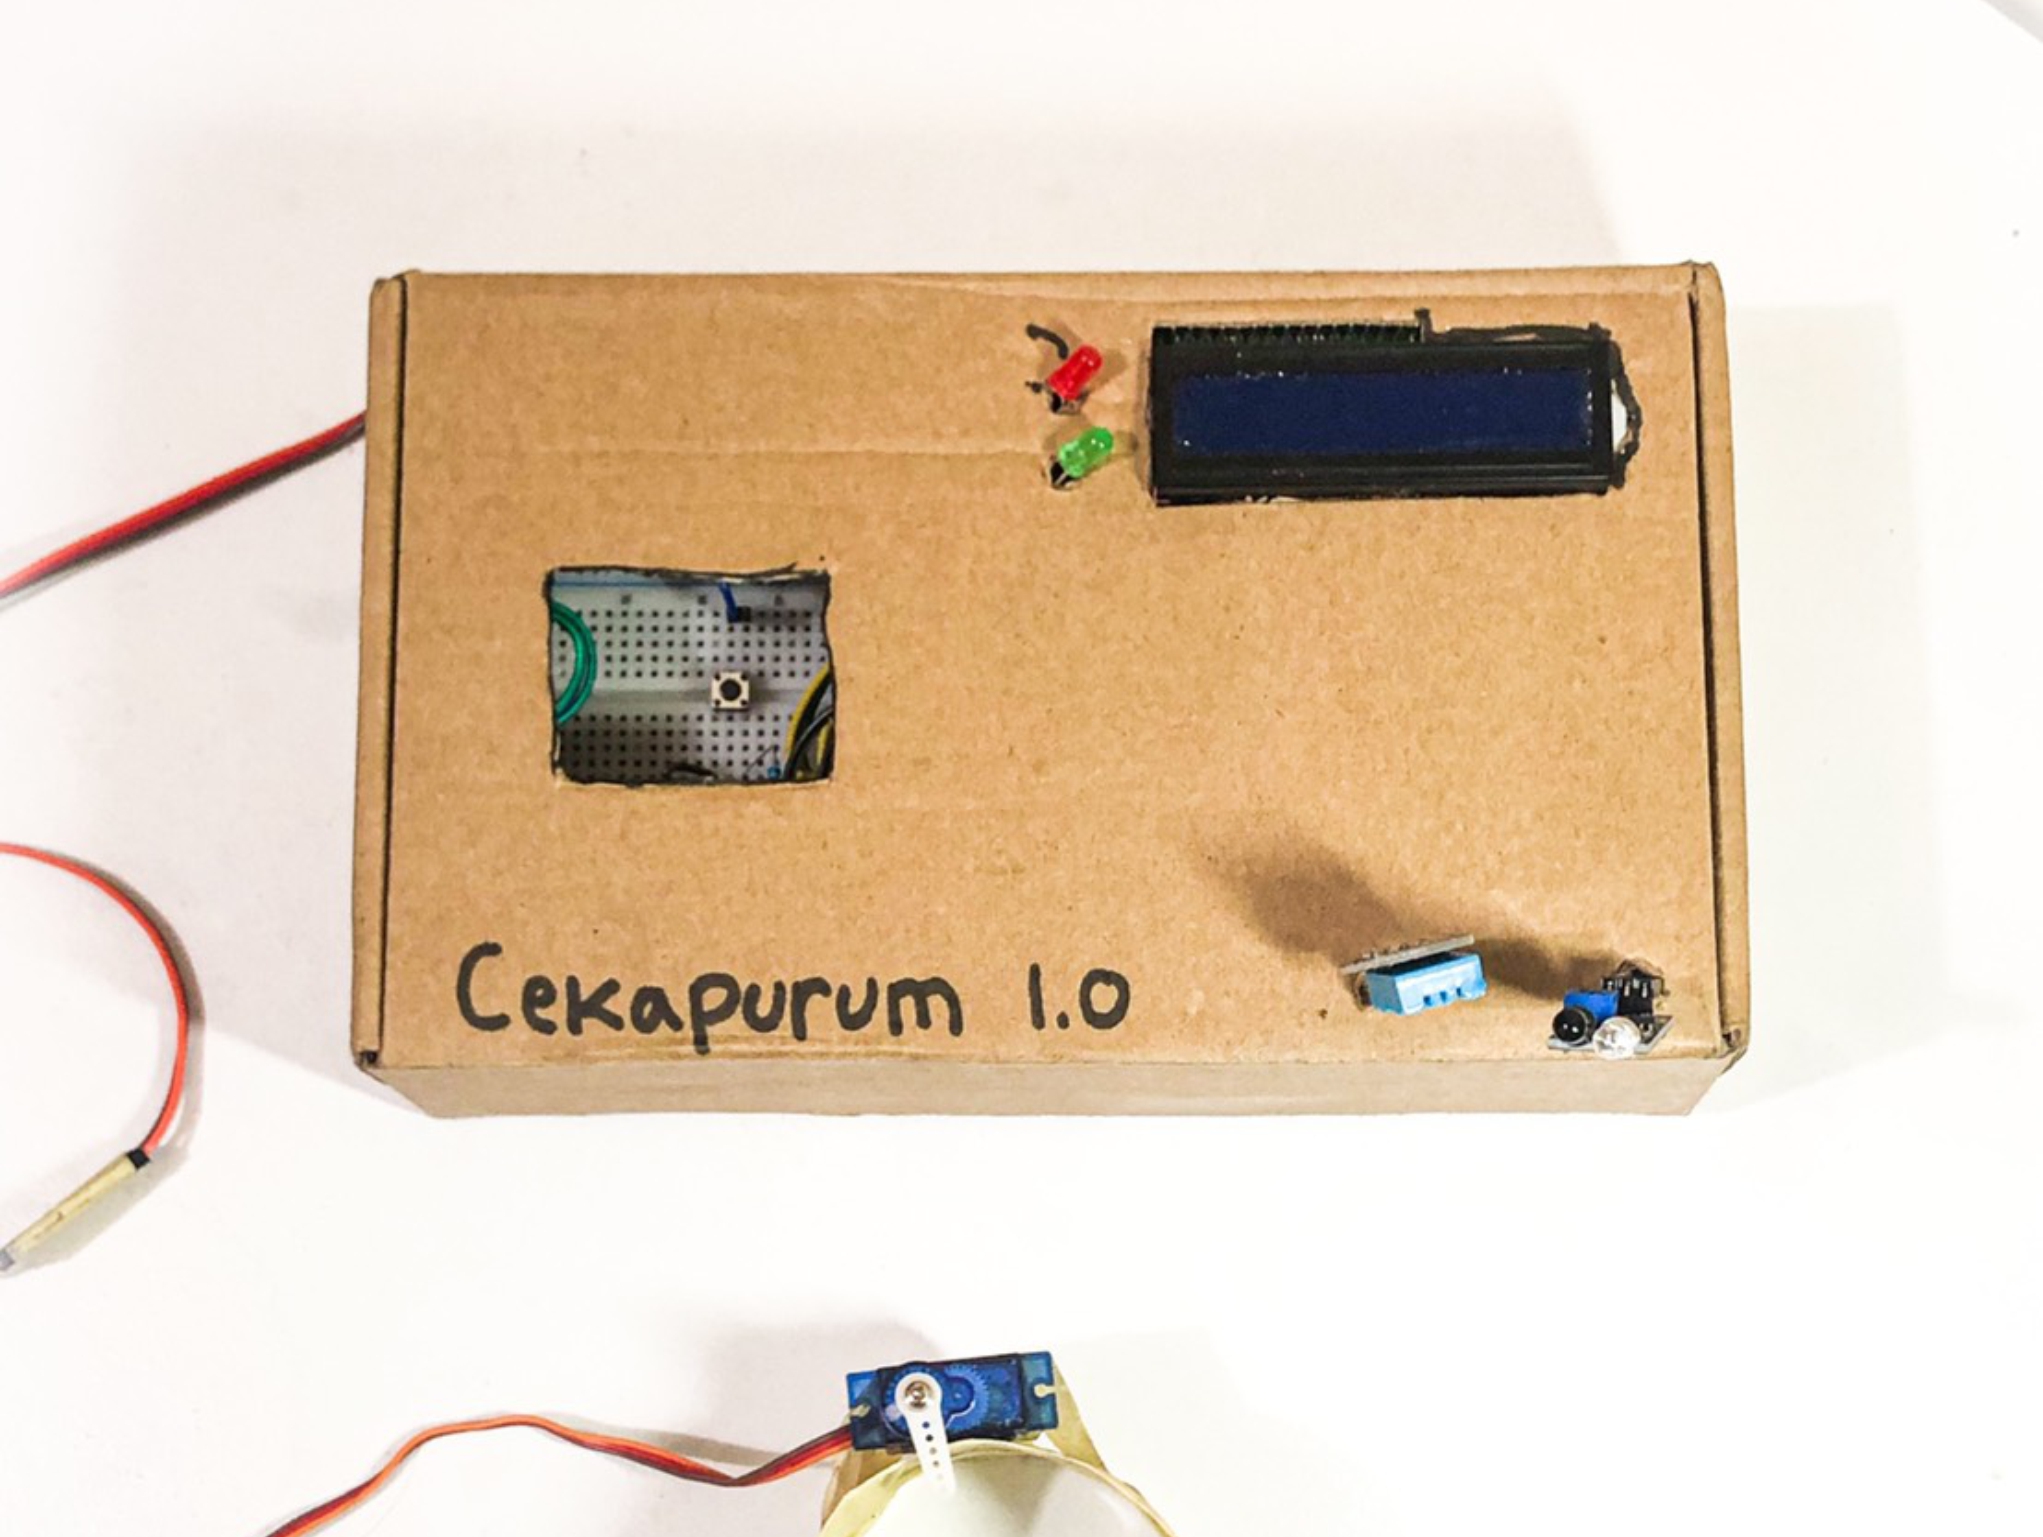 Cekapurum 1.0